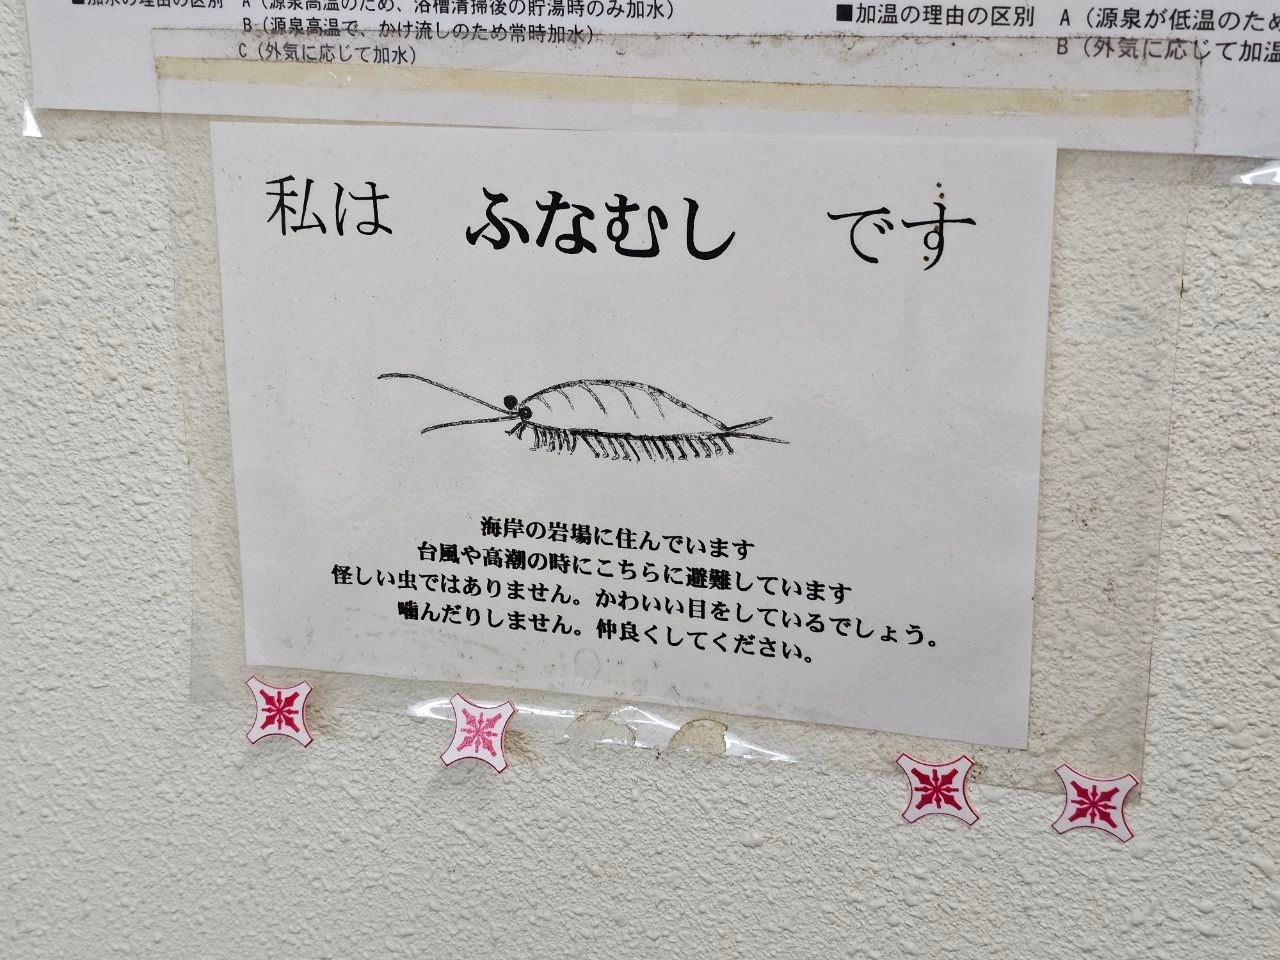 ■加水の理由の区別 A（源泉高温のため、浴槽清掃後の貯湯時のみ加水）
B（源泉高温で、かけ流しのため常時加水）
C（外気に応じて加水）
■加温の理由の区別 A（源泉が低温のため
B（外気に応じて加温
私は ふなむし です
海岸の岩場に住んでいます
台風や高潮の時にこちらに避難しています
怪しい虫ではありません。かわいい目をしているでしょう。
噛んだりしません。仲良くしてください。